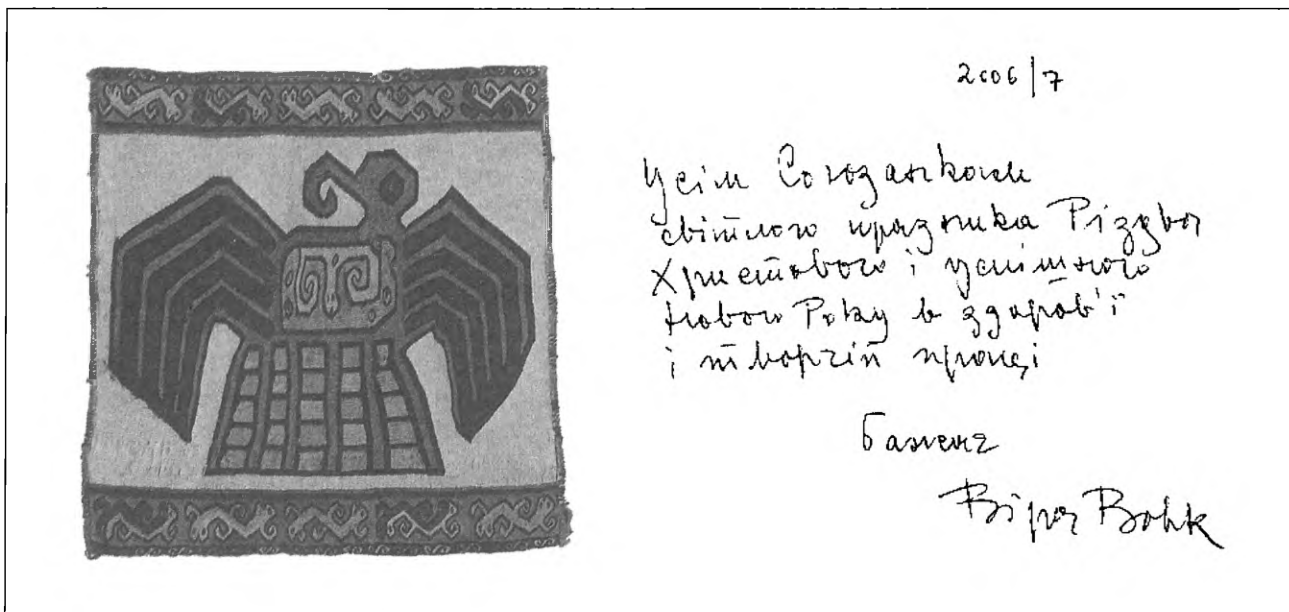 2006/7
Усім Союзянкам
світлого празника Різдва
Христового і успішного
Нового Року в здоров'ї
і творчій праці
бажає
Віра Вовк